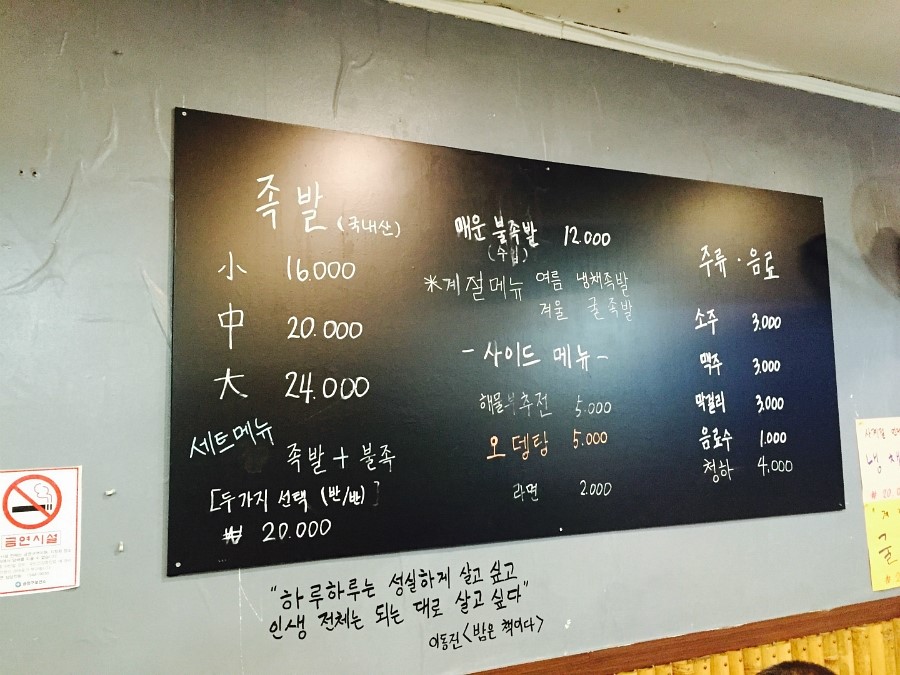 족발 (국내산)
小 16.000
中 20.000
大 24.000
세트메뉴
족발 + 불족
[두가지 선택 (반/반)]
₩ 20.000
매운 불족발 12.000
(수입)
※계절메뉴 여름 냉채족발
겨울 굴족발
- 사이드 메뉴 -
해물부추전 5.000
오뎅탕 5.000
라면 2.000
주류 · 음료
소주 3.000
맥주 3.000
막걸리 3.000
음료수 1.000
청하 4.000
"하루하루는 성실하게 살고 싶고
인생 전체는 되는 대로 살고 싶다"
이동진 <밤은 책이다>
금연시설
냉채
굴